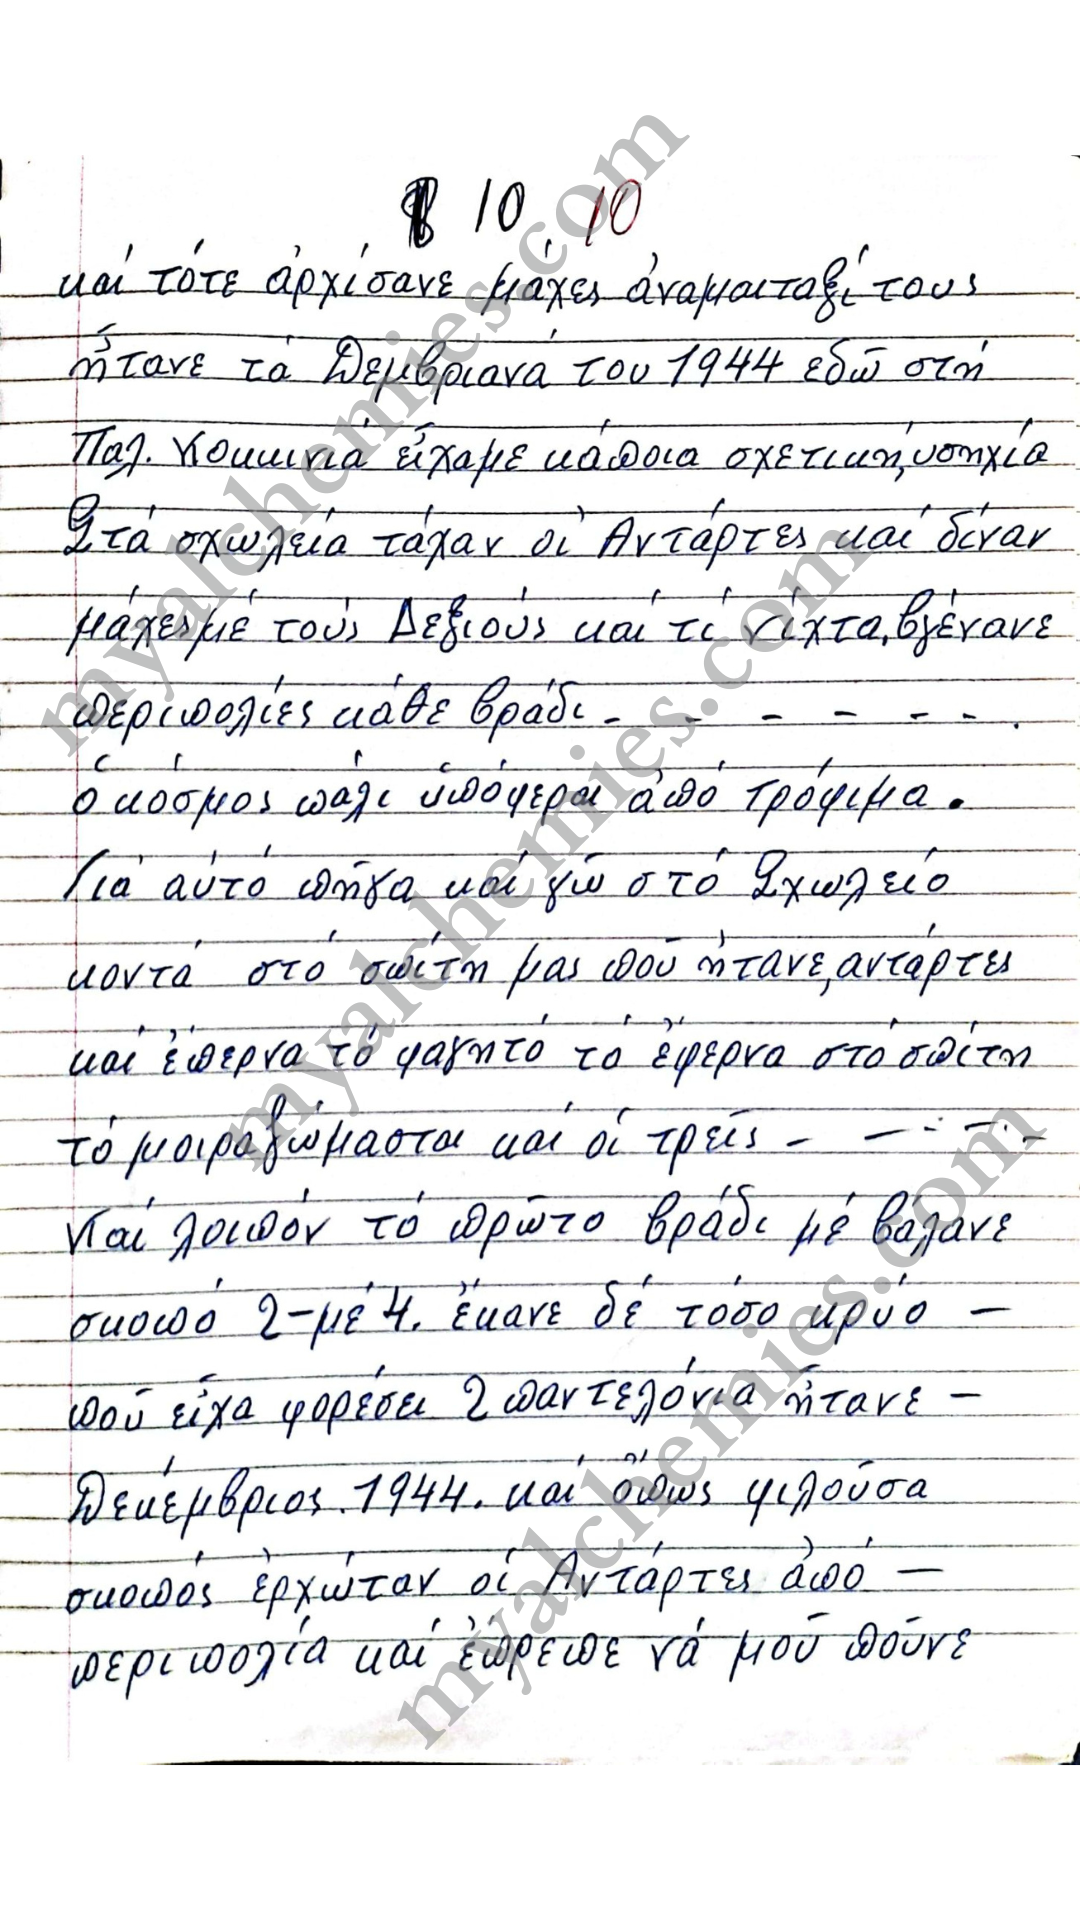 10 10
καί τότε ἀρχίσανε μάχες ἀναμαιταξί τους
ἤτανε τά Δεμβριανά του 1944 εδῶ στή
Παλ. Κοκκινιά εἴχαμε κάποια σχετική, υσηχία
Στά σχωλεία τάχαν οἱ Αντάρτες καί δίναν
μάχες μέ τούς Δεξιούς καί τί νίχτα, βγένανε
περιπολίες κάθε βράδι - - - - - - .
ὁ κόσμος πάλι ὑπόφεραι ἀπό τρόφιμα.
Γιά αὐτό πῆγα καί γῶ στό Σχωλείο
κοντά στό σπίτη μας ποῦ ἤτανε, αντάρτες
καί ἐπερνα τό φαγητό τό ἐφερνα στό σπίτη
τό μοιραζώμασται καί οἱ τρεῖς - - - - -
Καί λοιπόν τό πρῶτο βράδι μέ βάλανε
σκοπό 2-μέ 4. ἔκανε δέ τόσο κρύο -
ποῦ εἶχα φορέσει 2 παντελόνια ἤτανε -
Δεκέμβριος. 1944. καί ὅπως φιλοῦσα
σκοπός ἐρχώταν οἱ Αντάρτες ἀπό -
περιπολία καί ἐπρεπε νά μοῦ ποῦνε
myalchemies.com
myalchemies.com
myalchemies.com